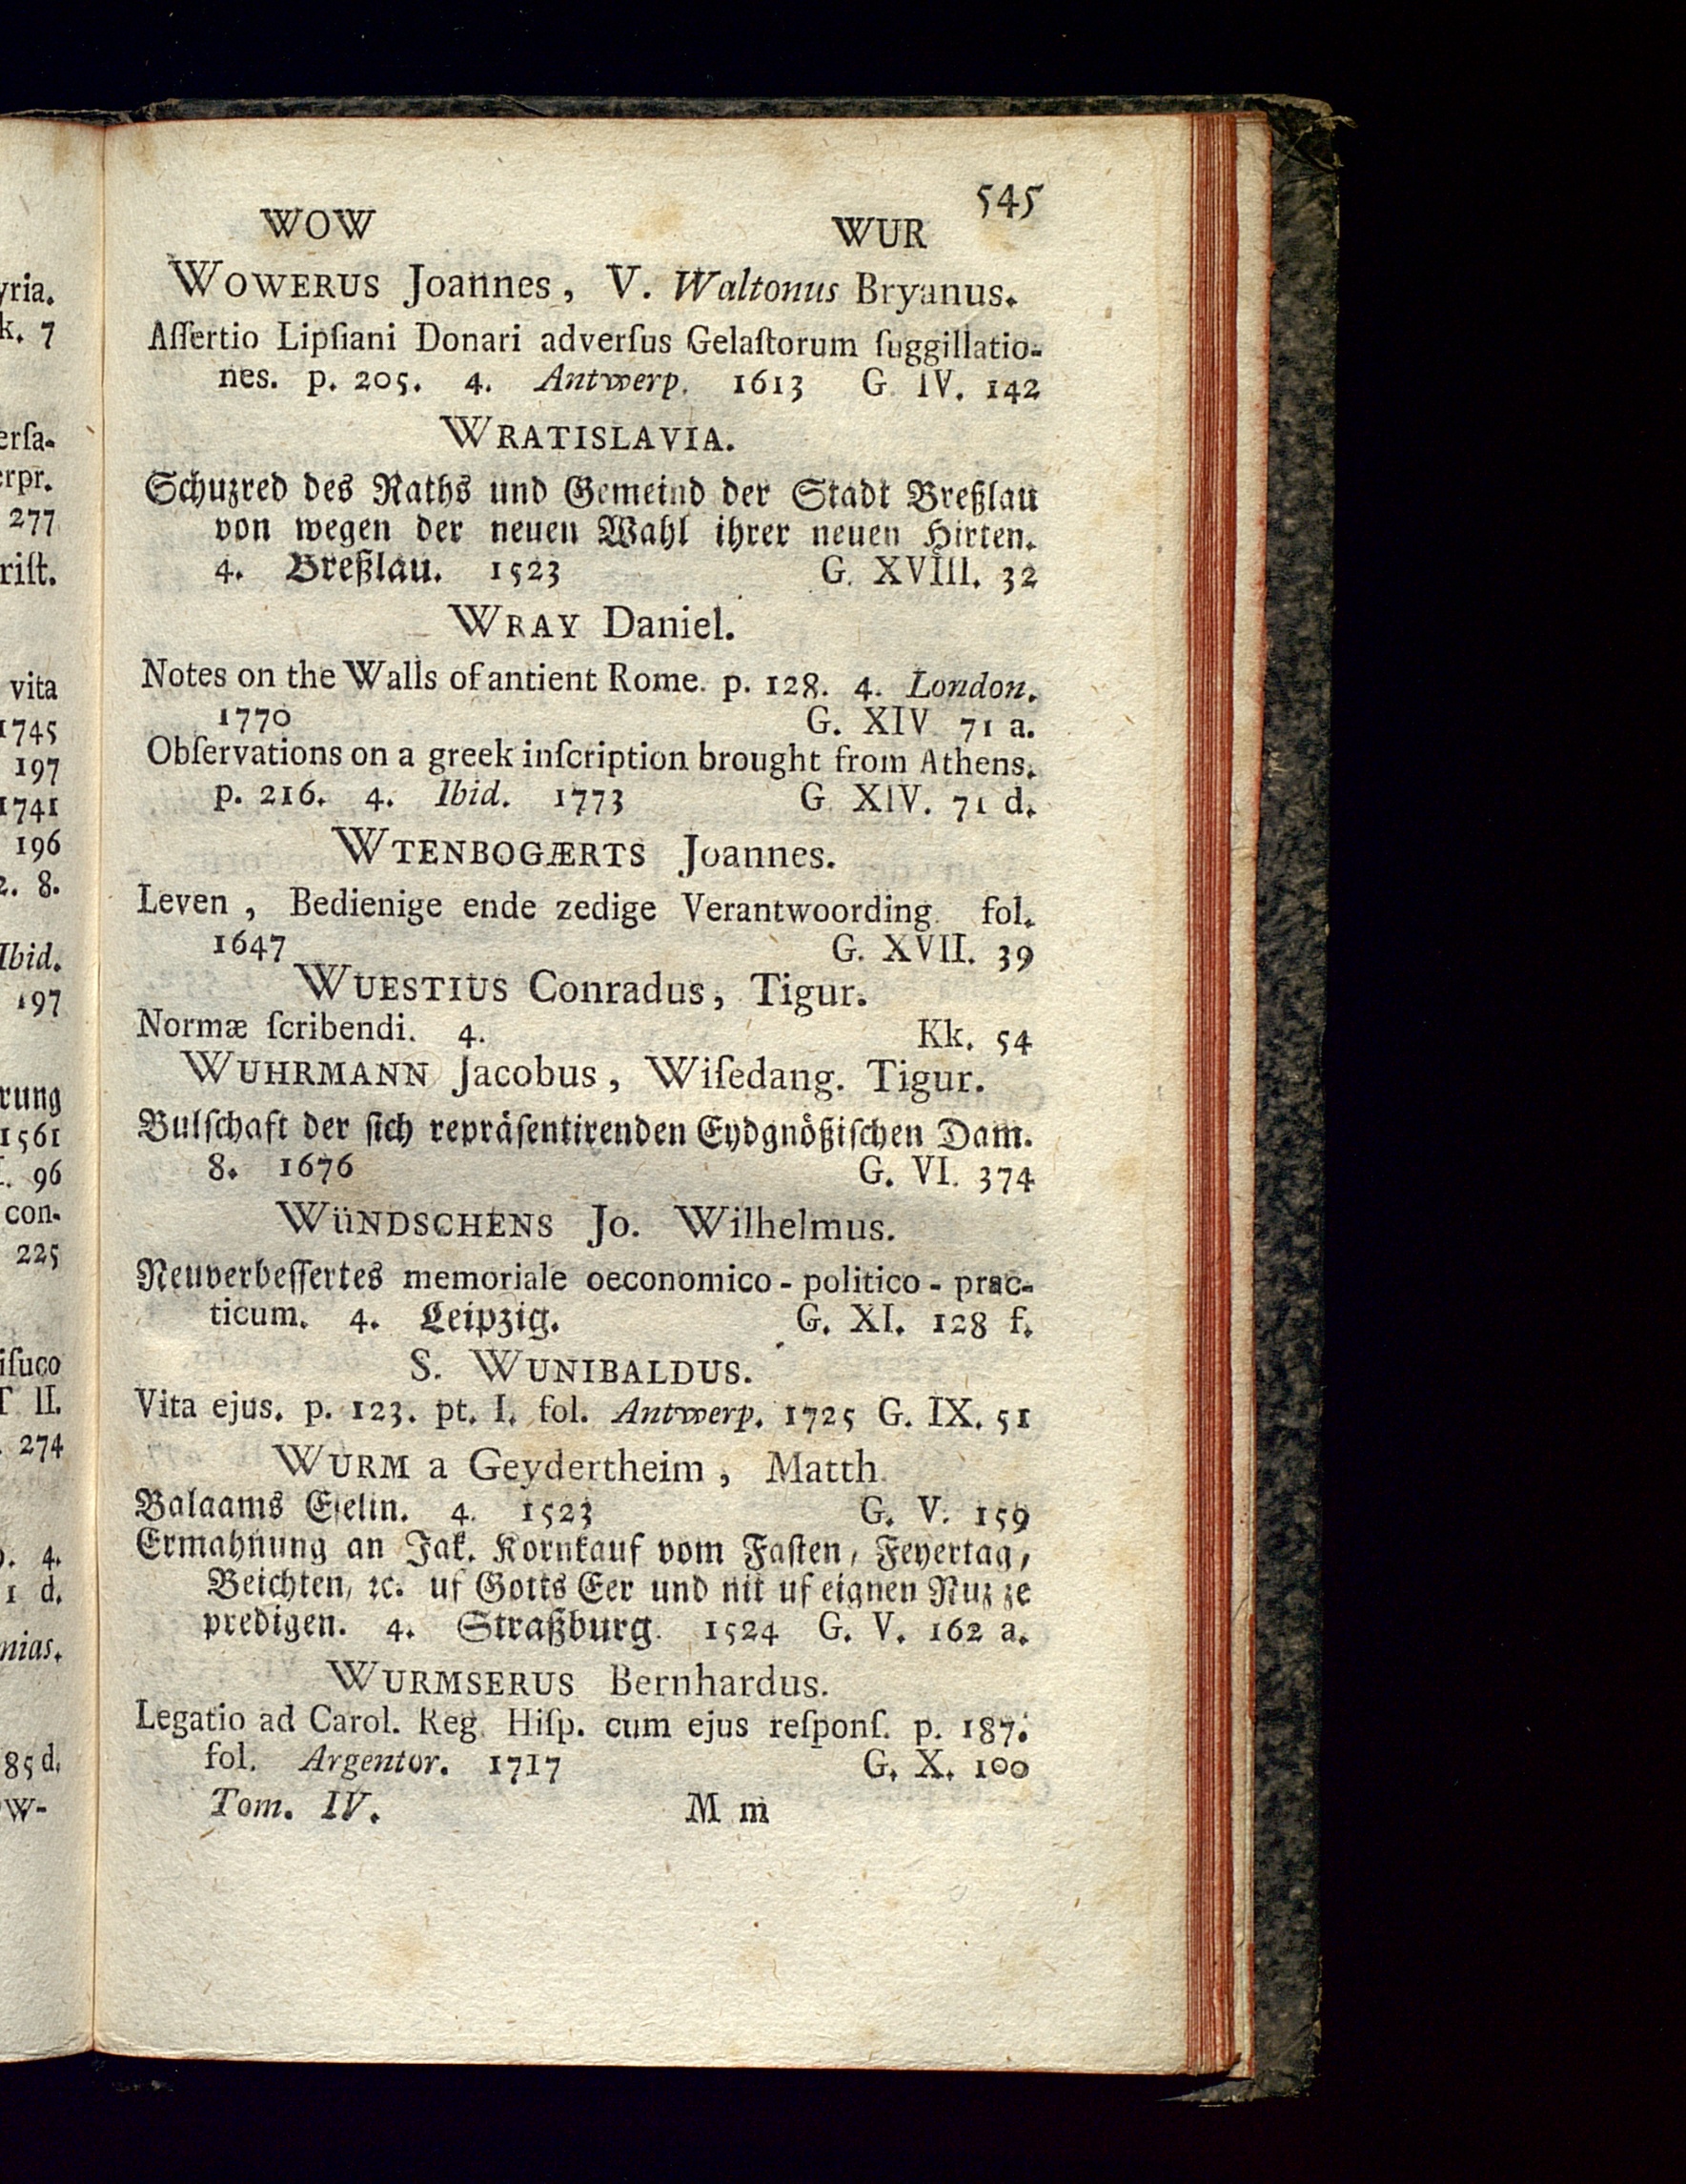 545
WOW WUR
WOWERUS Joannes, V. Waltonus Bryanus.
Aſſertio Lipſiani Donari adverſus Gelaſtorum ſuggillatio-
nes. p. 205. 4. Antwerp. 1613 G. IV. 142
WRATISLAVIA.
Schuzred des Raths und Gemeind der Stadt Breßlau
von wegen der neuen Wahl ihrer neuen Hirten.
4. Breßlau. 1523 G. XVIII. 32
WRAY Daniel.
Notes on the Walls of antient Rome. p. 128. 4. London.
1770 G. XIV 71 a.
Obſervations on a greek inſcription brought from Athens.
p. 216. 4. Ibid. 1773 G XIV. 71 d.
WTENBOGÆRTS Joannes.
Leven, Bedienige ende zedige Verantwoording. fol.
1647 G. XVII. 39
WUESTIUS Conradus, Tigur.
Normæ ſcribendi. 4. Kk. 54
WUHRMANN Jacobus, Wiſedang. Tigur.
Bulſchaft der ſich repräſentirenden Eydgnößiſchen Dam.
8. 1676 G. VI. 374
WÜNDSCHENS Jo. Wilhelmus.
Neuverbeſſertes memoriale oeconomico-politico-prac-
ticum. 4. Leipzig. G. XI. 128 f.
S. WUNIBALDUS.
Vita ejus. p. 123. pt. I. fol. Antwerp. 1725 G. IX. 51
WURM a Geydertheim, Matth.
Balaams Eſelin. 4. 1523 G. V. 159
Ermahnung an Jak. Kornkauf vom Faſten, Feyertag,
Beichten, ꝛc. uf Gotts Eer und nit uf eignen Nuz ze
predigen. 4. Straßburg. 1524 G. V. 162 a.
WURMSERUS Bernhardus.
Legatio ad Carol. Reg. Hiſp. cum ejus reſponſ. p. 187.
fol. Argentor. 1717 G. X. 100
Tom. IV. M m
yria.
k. 7
erſa-
erpr.
277
riſt.
vita
1745
197
1741
196
2. 8.
Ibid.
197
rung
1561
. 96
con-
225
iſuco
T II.
. 274
. 4.
1 d.
nias.
85 d.
W-